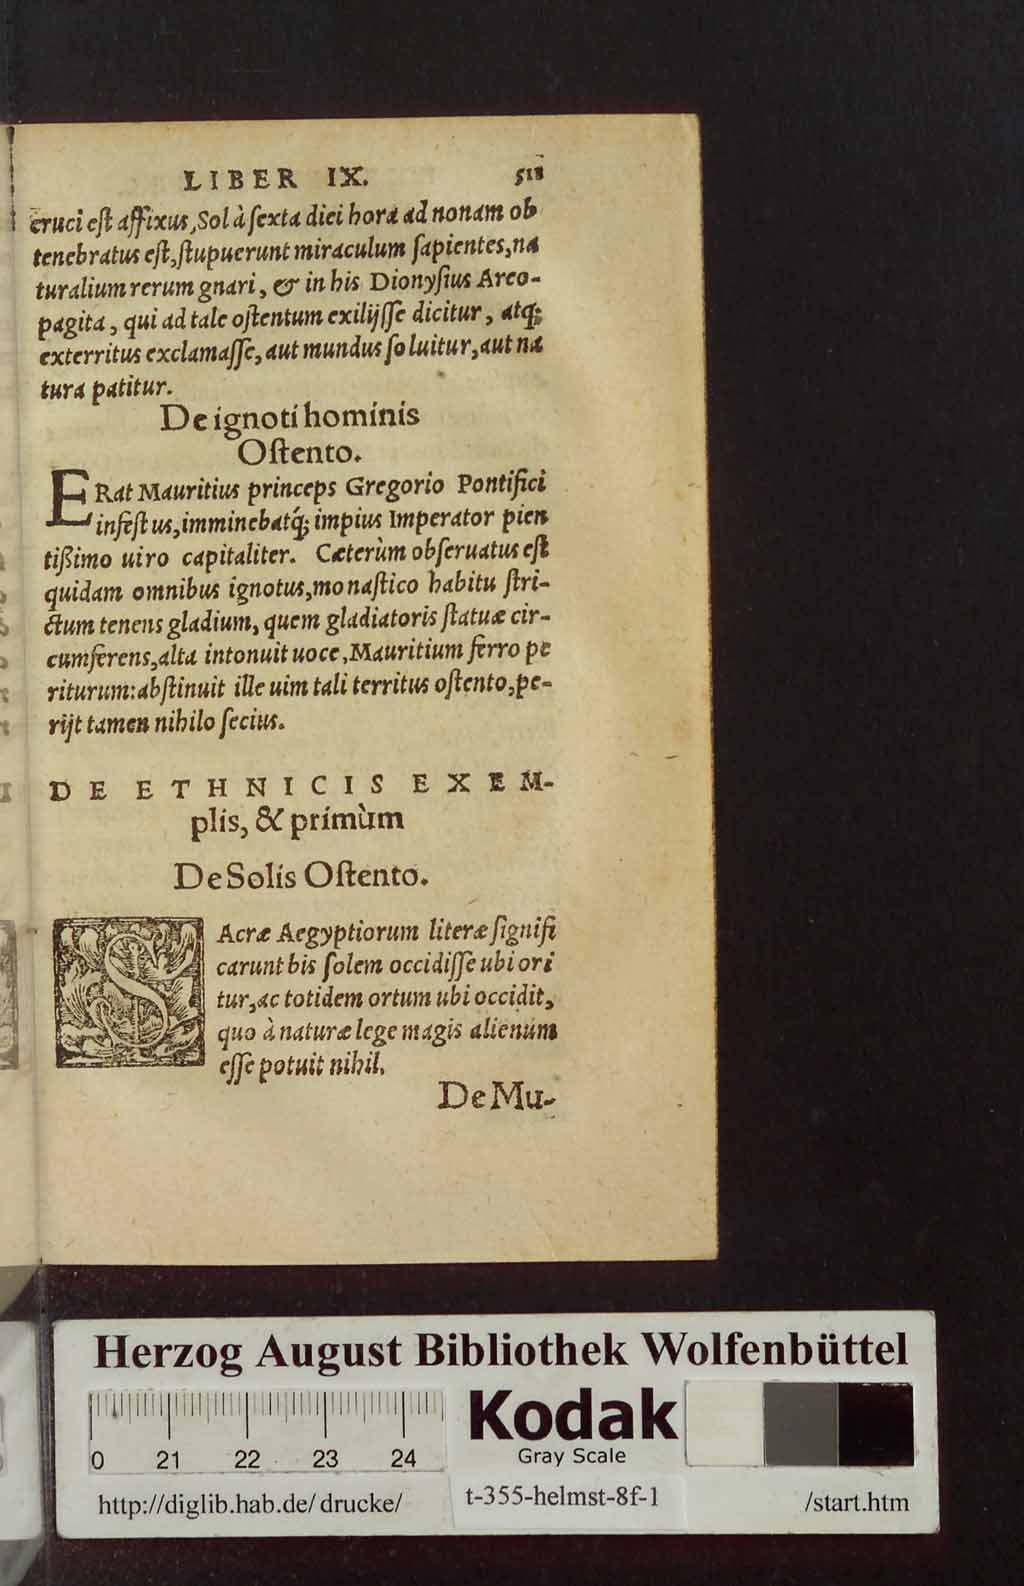 LIBER IX. 511
cruci eſt affixus, Sol à ſexta diei hora ad nonam ob
tenebratus eſt, ſtupuerunt miraculum ſapientes, na
turalium rerum gnari, & in his Dionyſius Areo-
pagita, qui ad tale oſtentum exilijſſe dicitur, atq;
exterritus exclamaſſe, aut mundus ſoluitur, aut na
tura patitur.
De ignoti hominis
Oſtento.
ERat Mauritius princeps Gregorio Pontifici
infeſtus, imminebatq́; impius Imperator pien
tißimo uiro capitaliter. Cæterùm obſeruatus eſt
quidam omnibus ignotus, monaſtico habitu ſtri-
ctum tenens gladium, quem gladiatoris ſtatuæ cir-
cumferens, alta intonuit uoce, Mauritium ferro pe
riturum: abſtinuit ille uim tali territus oſtento, pe-
rijt tamen nihilo ſecius.
DE ETHNICIS EXEM-
plis, & primùm
De Solis Oſtento.
SAcræ Aegyptiorum literæ ſignifi
carunt bis ſolem occidiſſe ubi ori
tur, ac totidem ortum ubi occidit,
quo à naturæ lege magis alienum
eſſe potuit nihil.
De Mu-
Herzog August Bibliothek Wolfenbüttel
0 21 22 23 24
Kodak
Gray Scale
http://diglib.hab.de/drucke/ t-355-helmst-8f-1 /start.htm